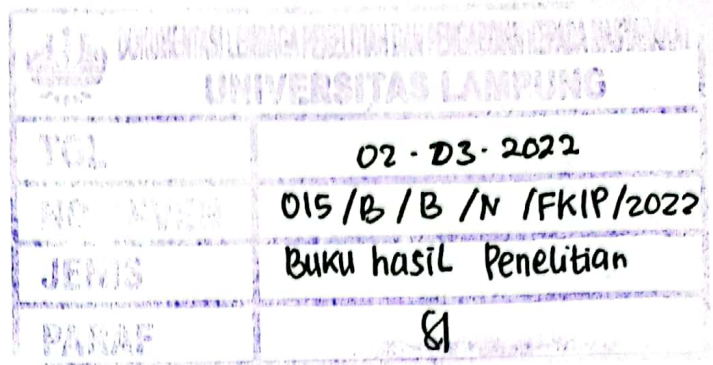 DOKUMENTASI LEMBAGA PENELITIAN DAN PENGABDIAN KEPADA MASYARAKAT
UNIVERSITAS LAMPUNG
TGL 02-03-2022
NO 015/B/B/N/FKIP/2022
JENIS Buku hasil Penelitian
PARAF